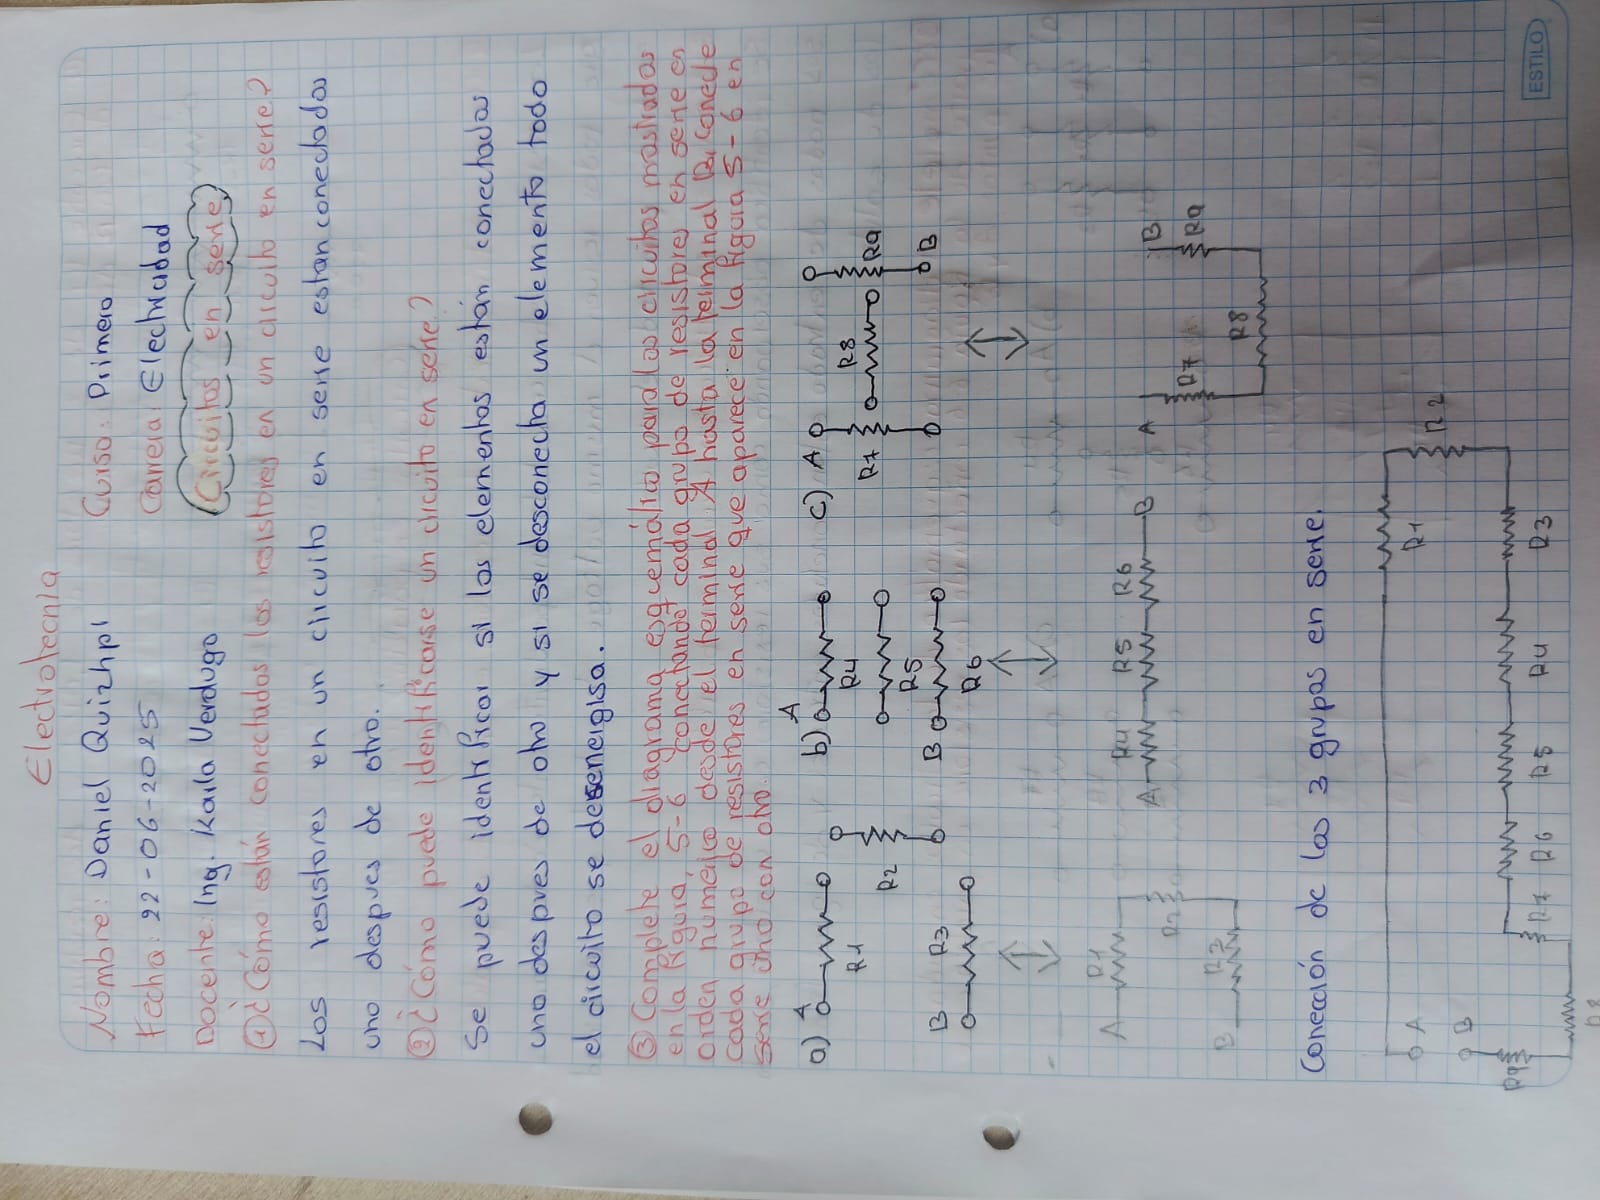 Electrotecnia
Nombre: Daniel Quizhpi Curso: Primero
Fecha: 22-06-2025 Carrera: Electricidad
Docente: Ing. Karla Verdugo Circuitos en serie
① ¿Cómo están conectados los resistores en un circuito en serie?
Los resistores en un circuito en serie estan conectados
uno despues de otro.
② ¿Cómo puede identificarse un circuito en serie?
Se puede identificar si los elementos están conectados
uno despues de otro y si se desconecta un elemento todo
el circuito se desenergisa.
③ Complete el diagrama esquemático para los circuitos mostrados
en la figura, 5-6 conectando cada grupo de resistores en serie en
orden númerico desde el terminal A hasta la terminal B. Conecte
cada grupo de resistores en serie que aparece en la figura 5-6 en
serie uno con otro.
a) A R1 R2 B R3
b) A R4 R5 B R6
c) A R7 R8 R9 B
A R1 R2 B R3
A R4 R5 R6 B
A R7 R8 R9 B
Conección de los 3 grupos en serie.
R1 R2
A
B
R9 R7 R6 R5 R4 R3
R8
ESTILO